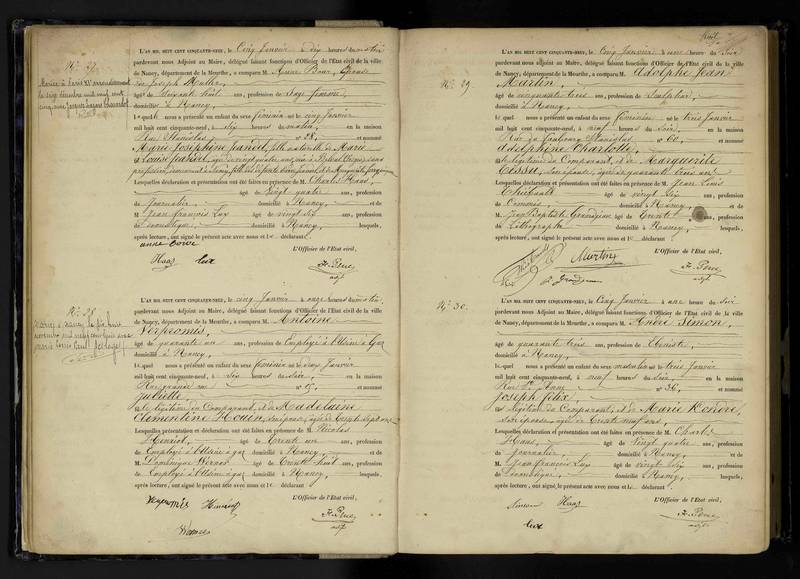 N° 27.
Mariée à Paris XIe arrondissement
le seize décembre mil neuf cent
cinq avec Jacques
L'AN MIL HUIT CENT CINQUANTE-NEUF, le Cinq Janvier à dix heures du matin
pardevant nous Adjoint au Maire, délégué faisant fonctions d'Officier de l'Etat civil de la ville
de Nancy, département de la Meurthe, a comparu M. Anne Bour, Epouse
de Joseph Muller,
âgée de soixante huit ans, profession de Sage femme,
domiciliée à Nancy,
lequel nous a présenté un enfant du sexe féminin né le cinq Janvier
mil huit cent cinquante-neuf, à dix heures du matin, en la maison
Rue Stanislas n° 28, et nommé
Marie Joséphine Jeandel, fille naturelle de Marie
Louise Jeandel, âgée de vingt quatre ans, née à
profession, demeurant à Nancy, fille
Lesquelles déclaration et présentation ont été faites en présence de M. Charles Haas,
âgé de Vingt quatre ans, profession
de Journalier, domicilié à Nancy, et de
M. Jean françois Lux âgé de vingt six ans, profession
de Domestique, domicilié à Nancy, lesquels,
après lecture, ont signé le présent acte avec nous et le déclarant
anne Boure
L'Officier de l'Etat civil,
Haas Lux
adjt
N° 28
Mariée à Nancy le dix huit
novembre mil neuf cent avec
L'AN MIL HUIT CENT CINQUANTE-NEUF, le cinq Janvier à onze heures du matin,
pardevant nous Adjoint au Maire, délégué faisant fonctions d'Officier de l'Etat civil de la ville
de Nancy, département de la Meurthe, a comparu M. Antoine
Verpromis,
âgé de quarante un ans, profession de Employé à l'Usine à gaz
domicilié à Nancy,
lequel nous a présenté un enfant du sexe féminin né le deux Janvier
mil huit cent cinquante-neuf, à six heures du soir, en la maison
Rue grande n° 5, et nommé
Juliette
fille légitime du Comparant, et de Madeleine
Clémentine Houin, son épouse, âgée de trente sept ans.
Lesquelles déclaration et présentation ont été faites en présence de M. Nicolas
Henriot, âgé de Trente un ans, profession
de Employé à l'Usine à gaz domicilié à Nancy, et de
M. Dominique Wernos âgé de Trente huit ans, profession
de Employé à l'Usine à gaz domicilié à Nancy, lesquels,
après lecture, ont signé le présent acte avec nous et le déclarant
L'Officier de l'Etat civil,
Verpromis Henriot
adjt
N° 29.
L'AN MIL HUIT CENT CINQUANTE-NEUF, le Cinq Janvier à une heure du Soir
pardevant nous Adjoint au Maire, délégué faisant fonctions d'Officier de l'Etat civil de la ville
de Nancy, département de la Meurthe, a comparu M. Adolphe Jean
Martin,
âgé de cinquante trois ans, profession de Sculpteur,
domicilié à Nancy,
lequel nous a présenté un enfant du sexe féminin né le trois Janvier
mil huit cent cinquante-neuf, à neuf heures du Soir, en la maison
Rue du faubourg Stanislas n° 60, et nommé
Adolphine Charlotte,
fille légitime du Comparant, et de Marguerite
son épouse, âgée de quarante trois ans.
Lesquelles déclaration et présentation ont été faites en présence de M. Jean Louis
Thiébault âgé de vingt Six ans, profession
de Commis, domicilié à Nancy, et de
M. Jean Baptiste Grandjean âgé de Trente ans, profession
de Lithographe domicilié à Nancy, lesquels,
après lecture, ont signé le présent acte avec nous et le déclarant
L'Officier de l'Etat civil,
Martin
adjt
N° 30.
L'AN MIL HUIT CENT CINQUANTE-NEUF, le Cinq Janvier à une heure du Soir
pardevant nous Adjoint au Maire, délégué faisant fonctions d'Officier de l'Etat civil de la ville
de Nancy, département de la Meurthe, a comparu M. André Simon,
âgé de quarante trois ans, profession de Ebéniste,
domicilié à Nancy,
lequel nous a présenté un enfant du sexe masculin né le trois Janvier
mil huit cent cinquante-neuf, à neuf heures du Soir, en la maison
Rue Ste Anne n° 36, et nommé
Joseph félix,
fils légitime du Comparant, et de Marie
son épouse, âgée de Trente neuf ans,
Lesquelles déclaration et présentation ont été faites en présence de M. Charles
Haas, âgé de Vingt quatre ans, profession
de Journalier, domicilié à Nancy, et de
M. Jean françois Lux âgé de vingt six ans, profession
de Domestique, domicilié à Nancy, lesquels,
après lecture, ont signé le présent acte avec nous et le déclarant
L'Officier de l'Etat civil,
Simon Haas
Lux
adjt